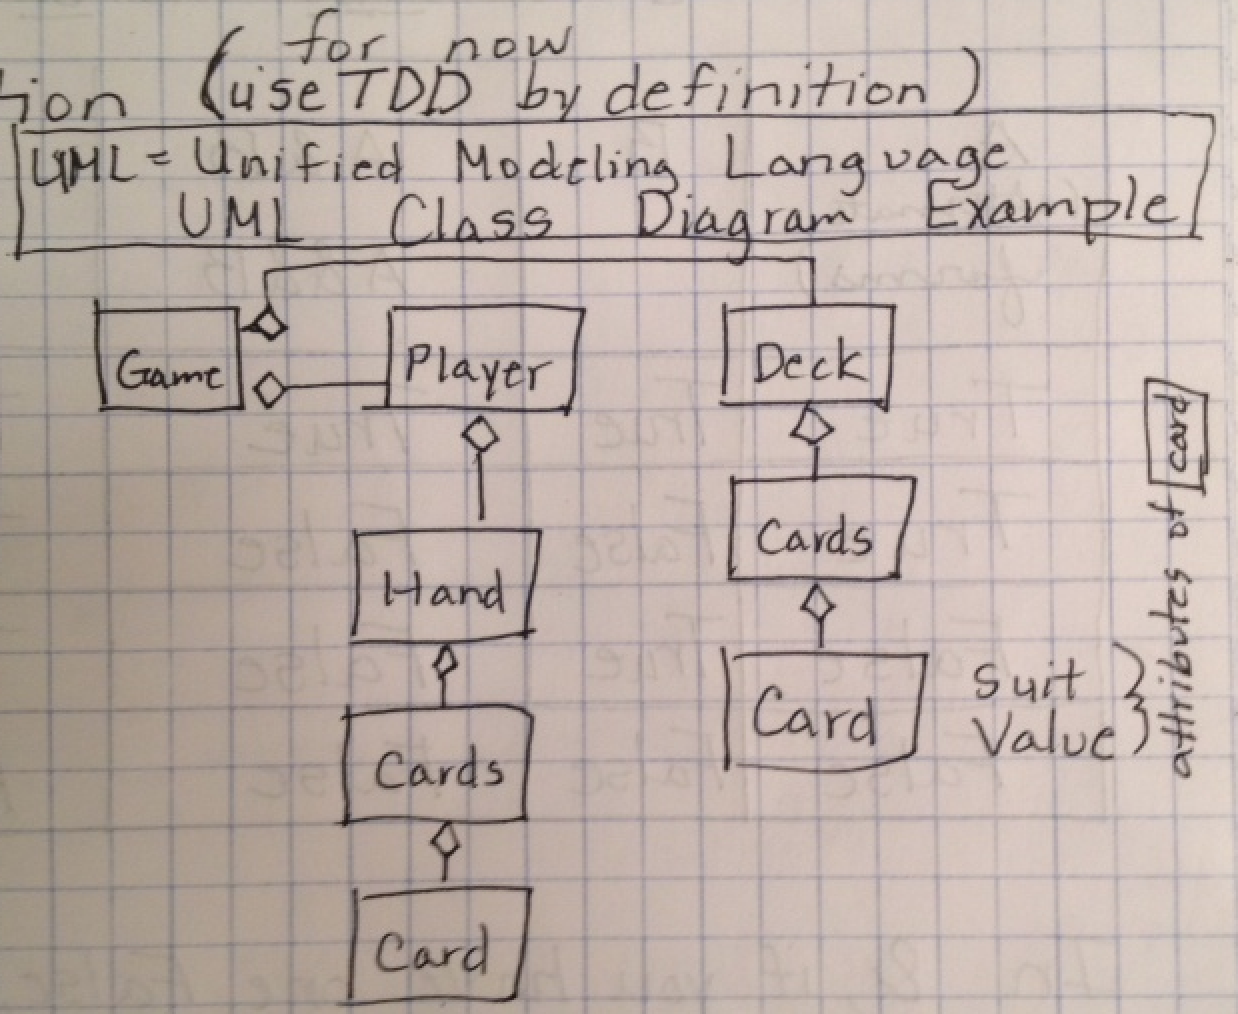 for now
tion (use TDD by definition)
UML = Unified Modeling Language
UML Class Diagram Example
Game
Player
Deck
Cards
Hand
Card
Suit
Value
attributes of card
Cards
Card